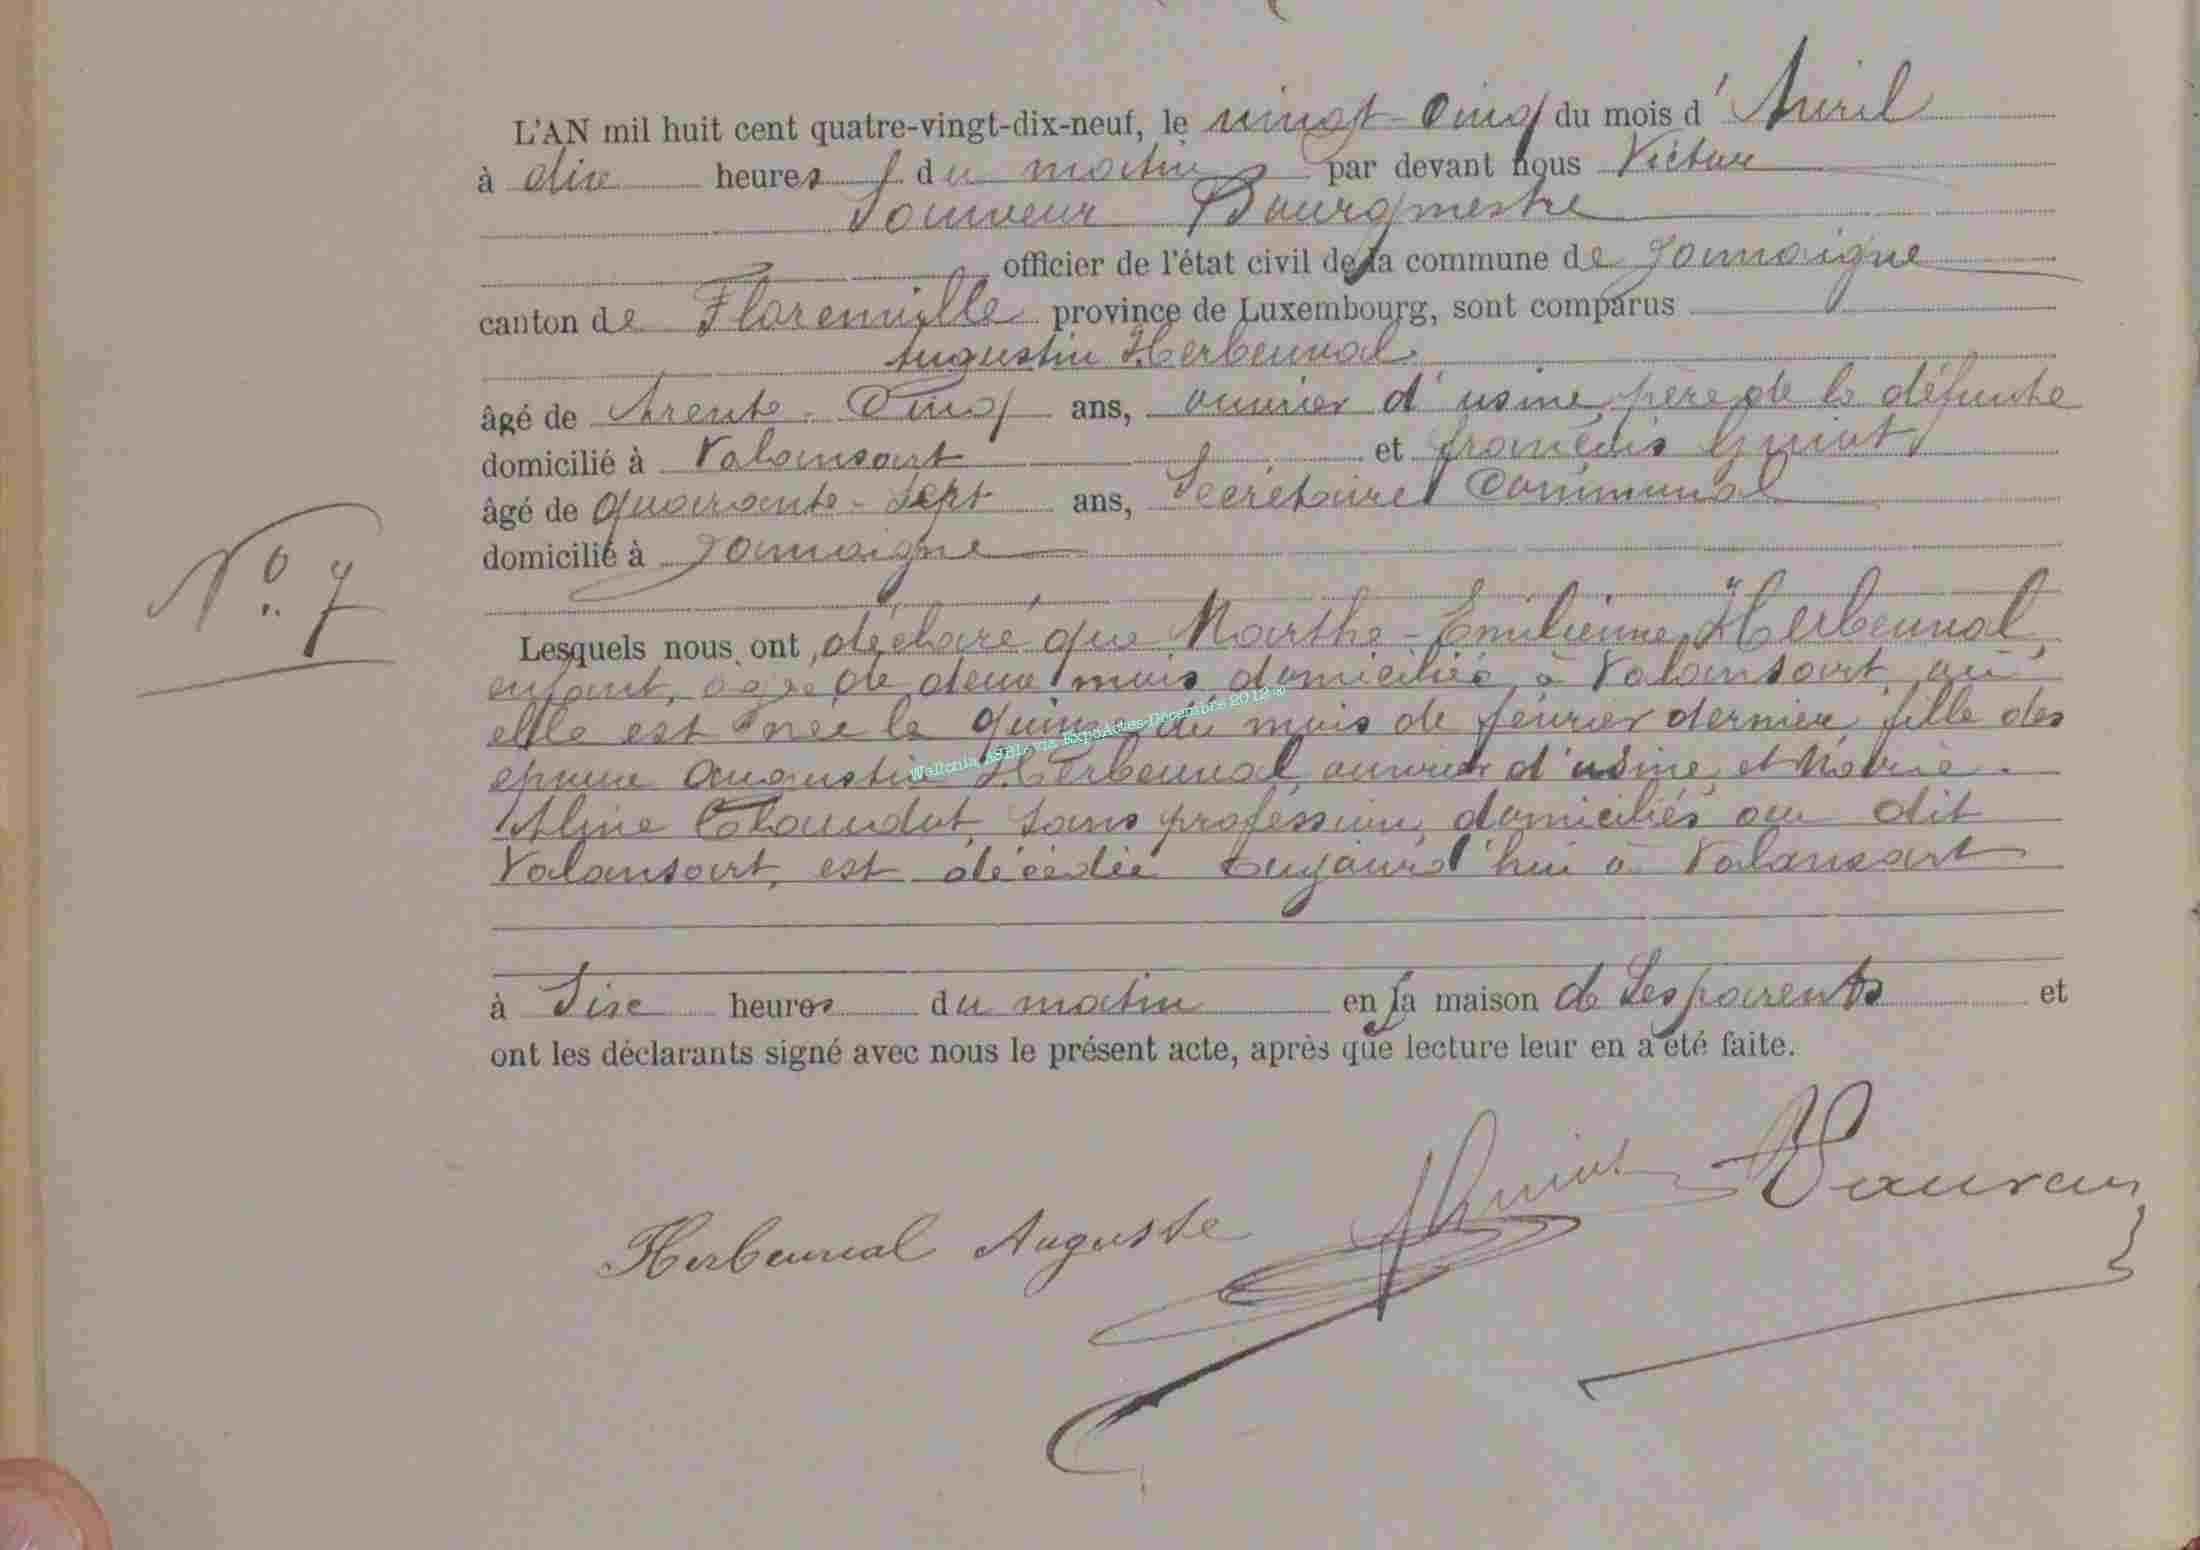 L'AN mil huit cent quatre-vingt-dix-neuf, le vingt-cinq du mois d'Avril
à dix heures du matin par devant nous Victor
Bourgmestre
officier de l'état civil de la commune de Jamoigne
canton de Florenville province de Luxembourg, sont comparus
Augustin Herbeuval
âgé de trente-cinq ans, ouvrier d'usine, père de la défunte
domicilié à Valansart et Guiot
âgé de quarante-sept ans, Secrétaire Communal
domicilié à Jamoigne
N° 7
Lesquels nous ont déclaré que Marthe-Emilienne Herbeuval,
enfant, âgée de deux mois, domiciliée à Valansart, où
elle est née le quinze du mois de février dernier, fille des
époux Augustin Herbeuval, ouvrier d'usine et Marie-
Aline Chaudut, sans profession, domiciliés au dit
Valansart, est décédée aujourd'hui à Valansart
à Six heures du matin en la maison de Ses parents et
ont les déclarants signé avec nous le présent acte, après que lecture leur en a été faite.
Herbeuval Auguste Guiot
Wallonia ASBL via ExpoActes-Décembre 2012 ©